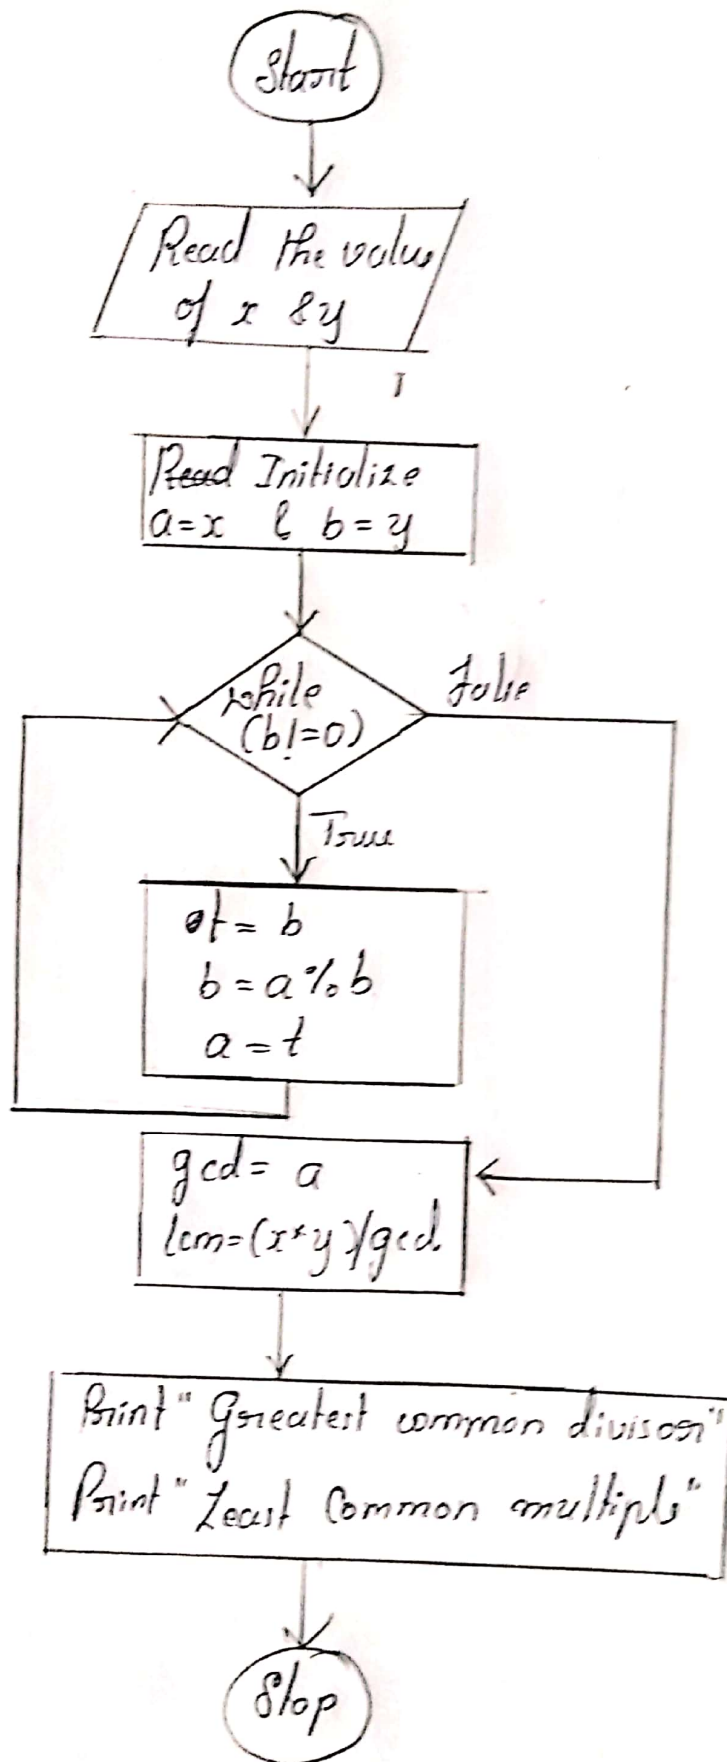 Start
Read the value
of x & y
Initialize
a=x & b=y
while
(b!=0)
False
True
t= b
b = a % b
a = t
gcd= a
lcm=(x*y)/gcd
Print "Greatest common divisor"
Print "Least Common multiple"
Stop